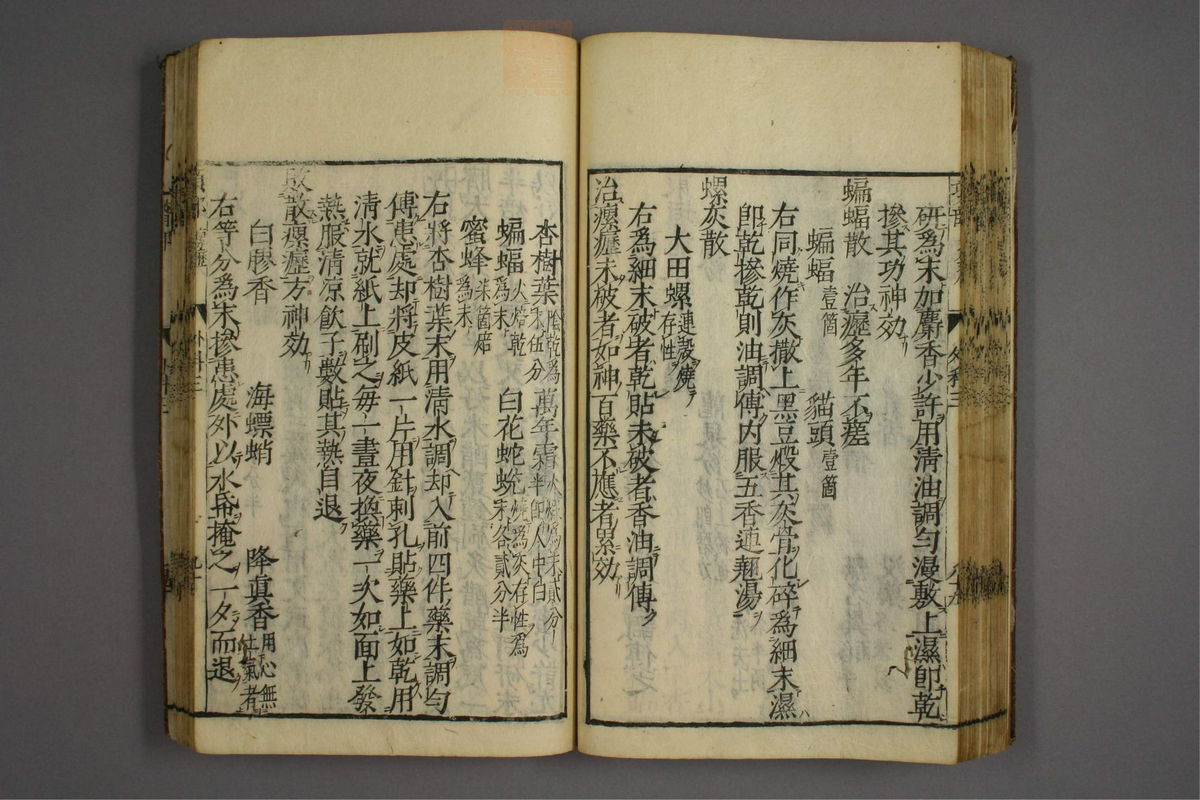 研爲末如麝香少許用清油調勻漫敷上濕即乾
摻其功神效
蝙蝠散 治瘰多年不瘥
蝙蝠壹箇 貓頭壹箇
右同燒作灰撒上黑豆煅其灰骨化碎爲細末濕
即乾摻乾則油調傅内服五香連翹湯
螺灰散
大田螺連殼燒存性
右爲細末破者乾貼未破者香油調傅
治瘰癧未破者如神百藥不應者累效
杏樹葉陰乾爲末伍分 萬年霜半卽人中白火煅爲末貳分
蝙蝠火焙乾爲末 白花蛇蛻燒爲灰存性爲末各貳分半
蜜蜂箇焙爲末
右將杏樹葉末用清水調却入前四件藥末調勻
傅患處却將皮紙一片用針刺孔貼藥上如乾用
清水就紙上刷之每一晝夜換藥一次如面上發
熱服清涼飲子數貼其熱自退
散瘰癧方神效
白膠香 海螵蛸 降眞香用心無土氣者
右等分爲末摻患處外以水紙掩之一夕而退